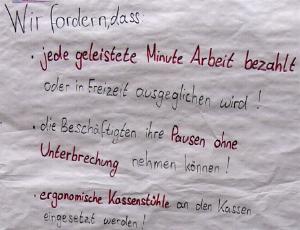 Wir fordern, dass:
• jede geleistete Minute Arbeit bezahlt
oder in Freizeit ausgeglichen wird!
• die Beschäftigten ihre Pausen ohne
Unterbrechung nehmen können!
• ergonomische Kassenstühle an den Kassen
eingesetzt werden!